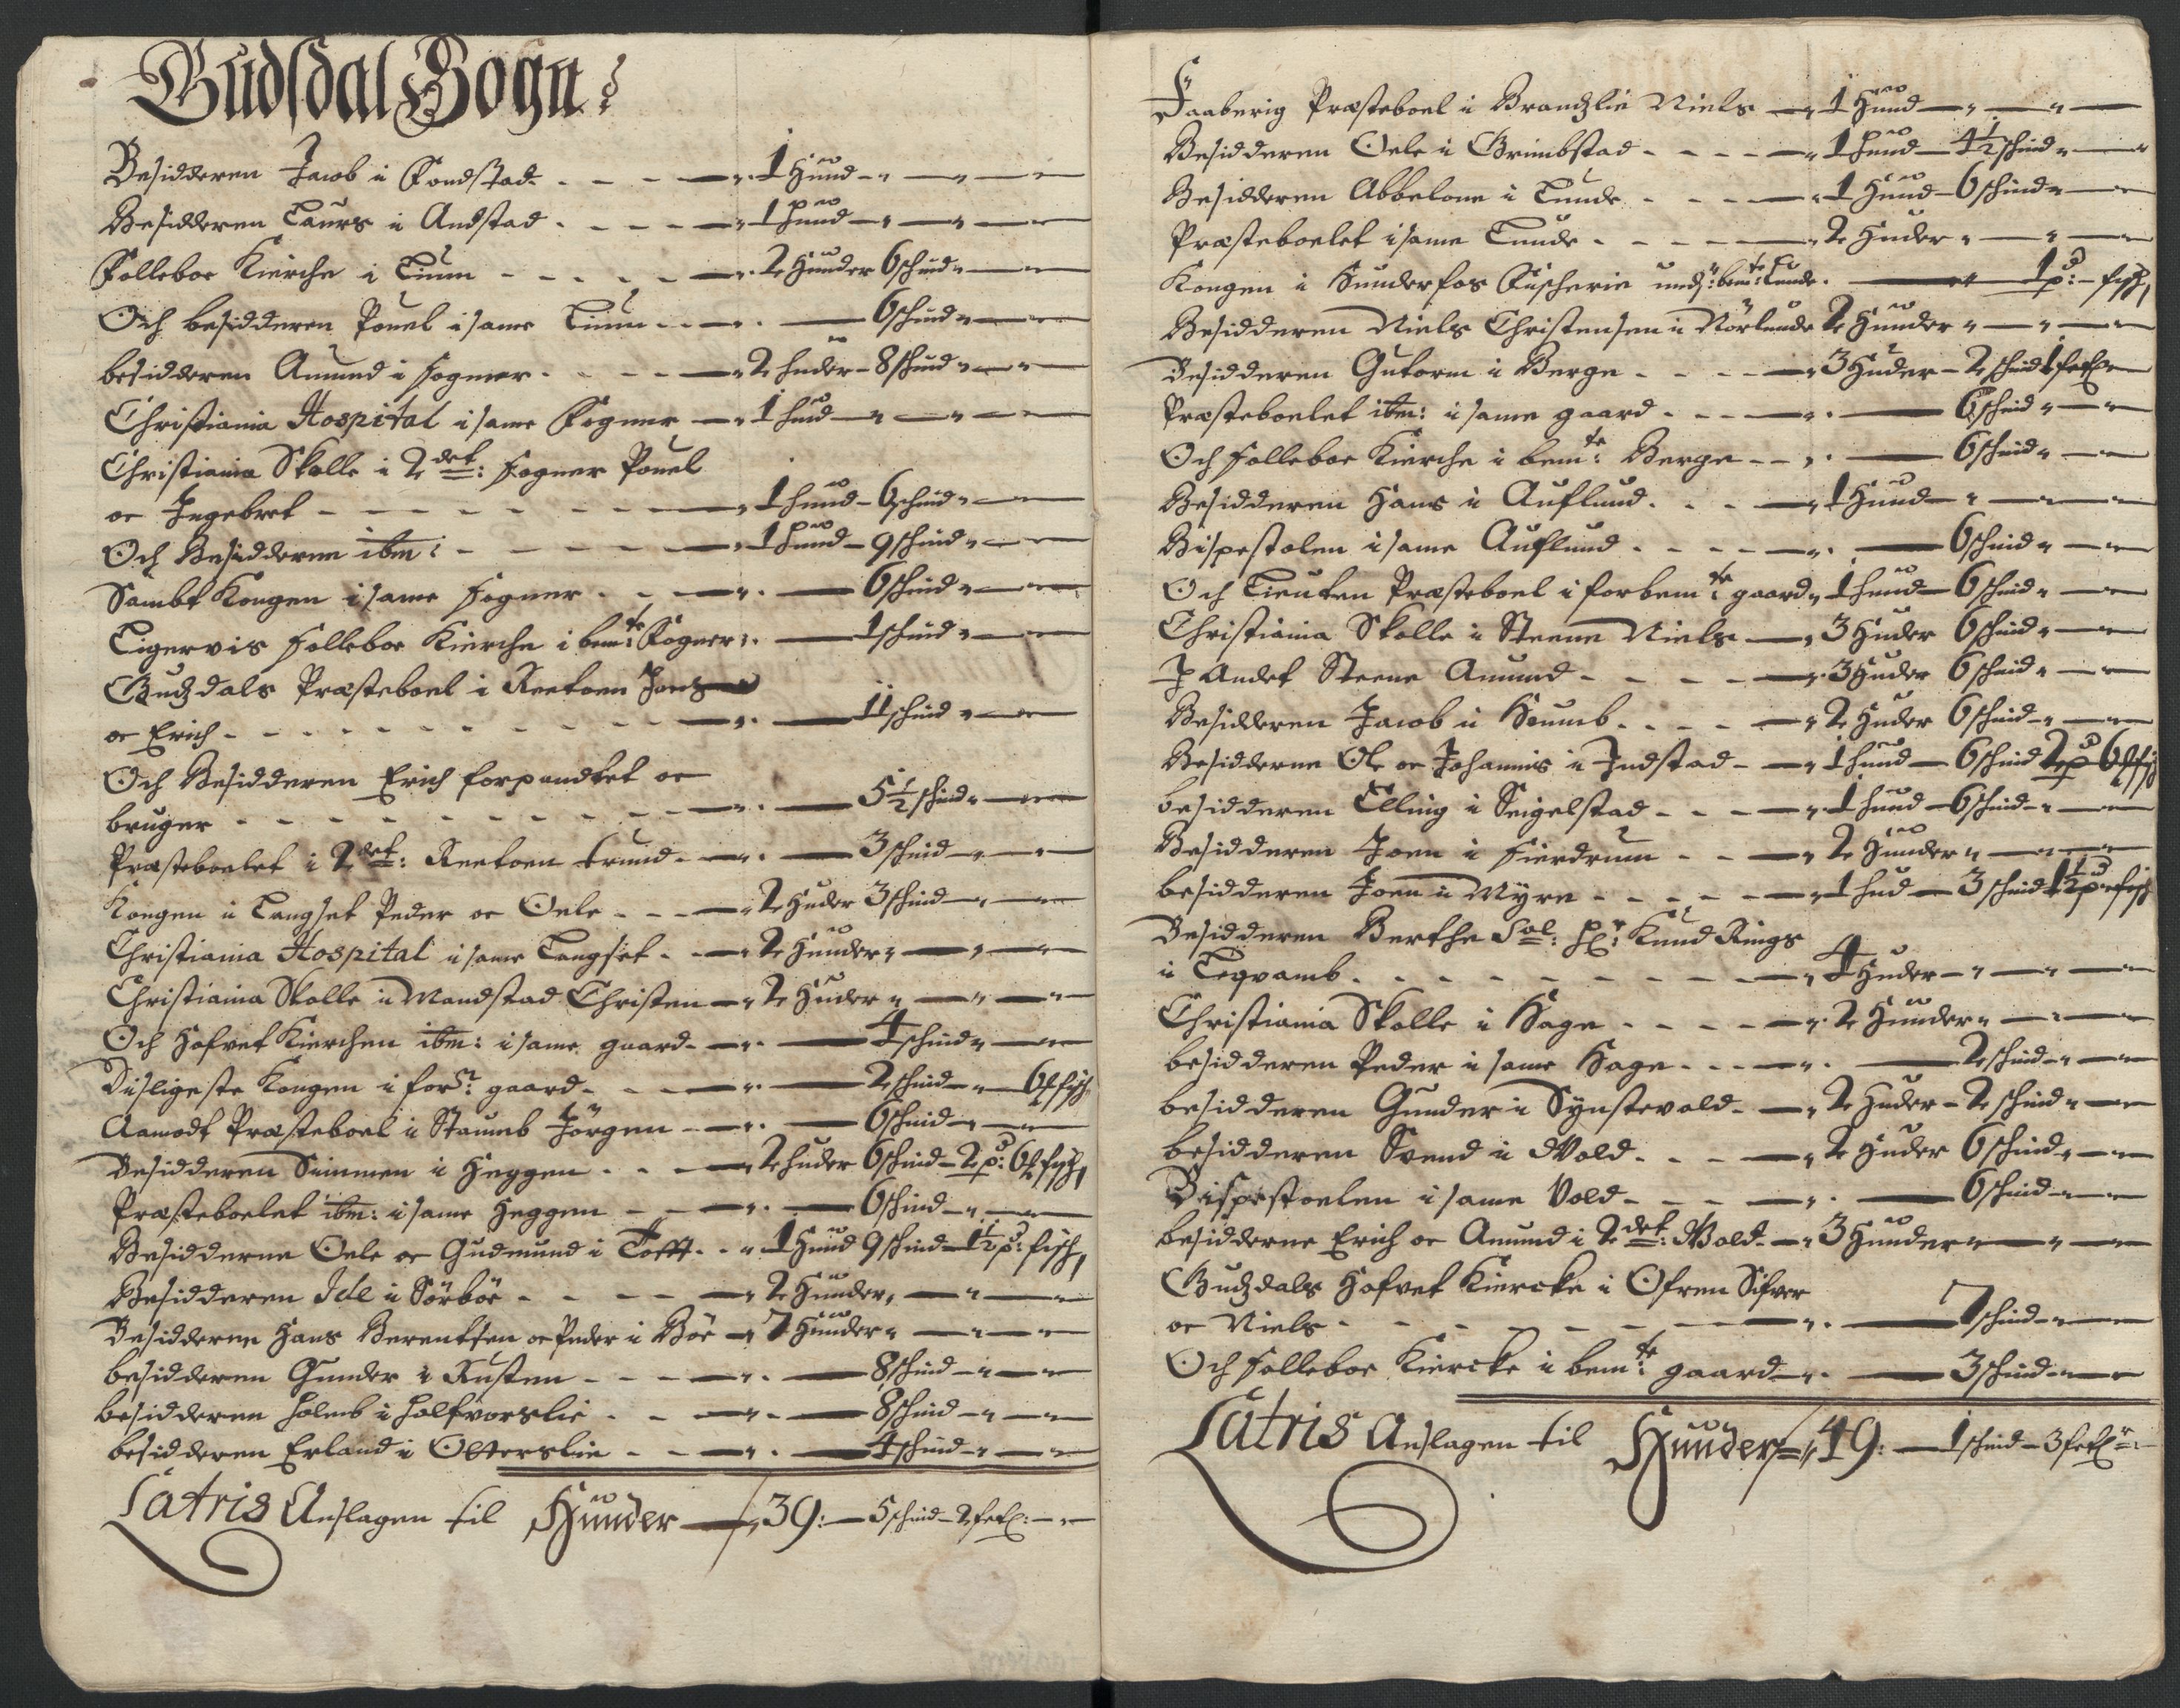 Gudsdal Sogn:
Besidderen Jacob i Fondstad - - - 1 Hund
Besidderen Laurs i Andstad - - - 1 hund
Folleboe Kirche i Lium - - - 2 Hunder 6 schind
Och besidderen Pouel i same Lium - - - 6 schind
besidderen Amund i Fogner - - - 2 huder - 8 schind
Christiania Hospital i same Fogner - 1 hud
Christiania Skolle i 2det: Fogner Pouel
oc Ingebret - - - 1 hund - 6 schind
Och Besidderne ibm: - - - 1 hund - 9 schind
Sambt Kongen i same Fogner - - - 6 schind
Ligervis Folleboe Kirche i bemte: Fogner - 1 schind
Gudzdals Præsteboel i Reetoen
oc Erich - - - 11 schind
Och Besidderen Erich forpandtet oc
bruger - - - 5 1/2 schind
Præsteboelet i 2det: Reetoen trund - - 3 schind
Kongen i Langset Peder oc Oele - - - 2 Huder 3 schind
Christiania Hospital i same Langset - - 2 Hunder
Christiania Skolle i Mandstad Christen - 2 Huder
Och Hofvet Kirchen ibm: i same gaard - - 4 schind
Disligeste Kongen i forn: gaard - - - 2 schind - 6 fisch
Aamodt Præsteboel i Staumb Jörgen - - 6 schind
Besidderen Simmen i Heggen - - - 2 huder 6 schind - 2 pd: 6 fisch
Præsteboelet ibm: i same Heggen - - 6 schind
Besidderne Oele oc Gudmund i Tofft - - 1 Hund 9 schind - 1 1/2 pd: fisch
Besidderen Ide i Sörböe - - - 2 Hunder
Besidderne Hans Berentsen oc Peder i Böe - 7 Hunder
besidderen Gunder i Rusten - - - 8 schind
besidderen Holmb i Halfvorslie - - - 8 schind
besidderen Erland i Olterslie - - - 4 schind
Latris Anslagen til Hunder - 39: - 5 schind - 2
Faaberig Præsteboel i Brandzlie Niels - 1 Hund
Besidderen Oele i Grimbstad - - - 1 hund - 4 1/2 schind
Besidderen Abbelone i Lunde - - - 1 Hund - 6 schind
Præsteboelet i same Lunde - - - 2 Huder
Kongen i Hunderfos Fischerie und: bemte: Lunde - 1 pd: - fisch
Besidderen Niels Christensen i Nörlunde 2 Hunder
Besidderen Gutorm i Berge - - - 3 Huder - 2 schind 1
Præsteboelet ibm: i same gaard - - - 6 schind
Och Folleboe Kirche i bemte: Berge - - 6 schind
Besidderen Hans i Auflund - - - 1 Hund
Bispestolen i same Auflund - - - 6 schind
Och Lieuten Præsteboel i forbemte: gaard 1 hund - 6 schind
Christiania Skolle i Steene Niels - 3 Huder 6 schind
I Andet Steene Amund - - - 3 Huder 6 schind
Besidderen Jacob i Houmb - - - 2 Huder 6 schind
Besidderne Ole oc Johannis i Indstad - 1 hund - 6 schind 2 pd 6 fisch
besidderen Elling i Seigelstad - - - 1 hund - 6 schind
Besidderen Joen i Fierdrum - - - 2 Hunder
besidderen Joen i Myre - - - 1 hud - 3 schind 1 1/2 pd fisch
Besidderen Berthe Sal: Hr: Knud Rings
i Leqvamb - - - 4 Huder
Christiania Skolle i Hage - - - 2 Hunder
besidderen Peder i same Hage - - - 2 schind
besidderen Gunder i Synstevold - - 2 Huder - 2 schind
besidderen Svend i Wold - - - 2 Huder 6 schind
Bispestoelen i same Vold - - - 6 schind
besidderne Erich oc Amund i 2det: Wold - 3 Hunder
Gudzdals Hofvet Kiercke i Ofren Sifver
oc Niels - - - 7 schind
Och Folleboe Kiercke i bemte: gaard - 3 schind
Latris Anslagen til Hunder 49: - 1 schind - 3